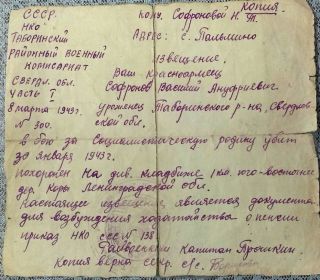 Копия
СССР.
НКО
Таборинский
районный военный
комисариат
Свердл. обл.
Часть I
8 марта 1943 г.
№ 300.
Кому. Софроновой Н.
Адрес: с. Пальмино
Извещение.
Ваш красноармеец
Софронов Василий Ануфриевич.
уроженец Таборинского р-на, Свердлов-
ской обл.
в бою за социалистическую родину убит
30 января 1943 г.
похоронен на див. кладбище 1 км. юго-восточнее
дер. Коры Ленинградской обл.
Настоящее извещение является документом
для возбуждения ходатайства о пенсии
приказ НКО СССР № 138
Райвоенком капитан
Копия верна секр. с/с